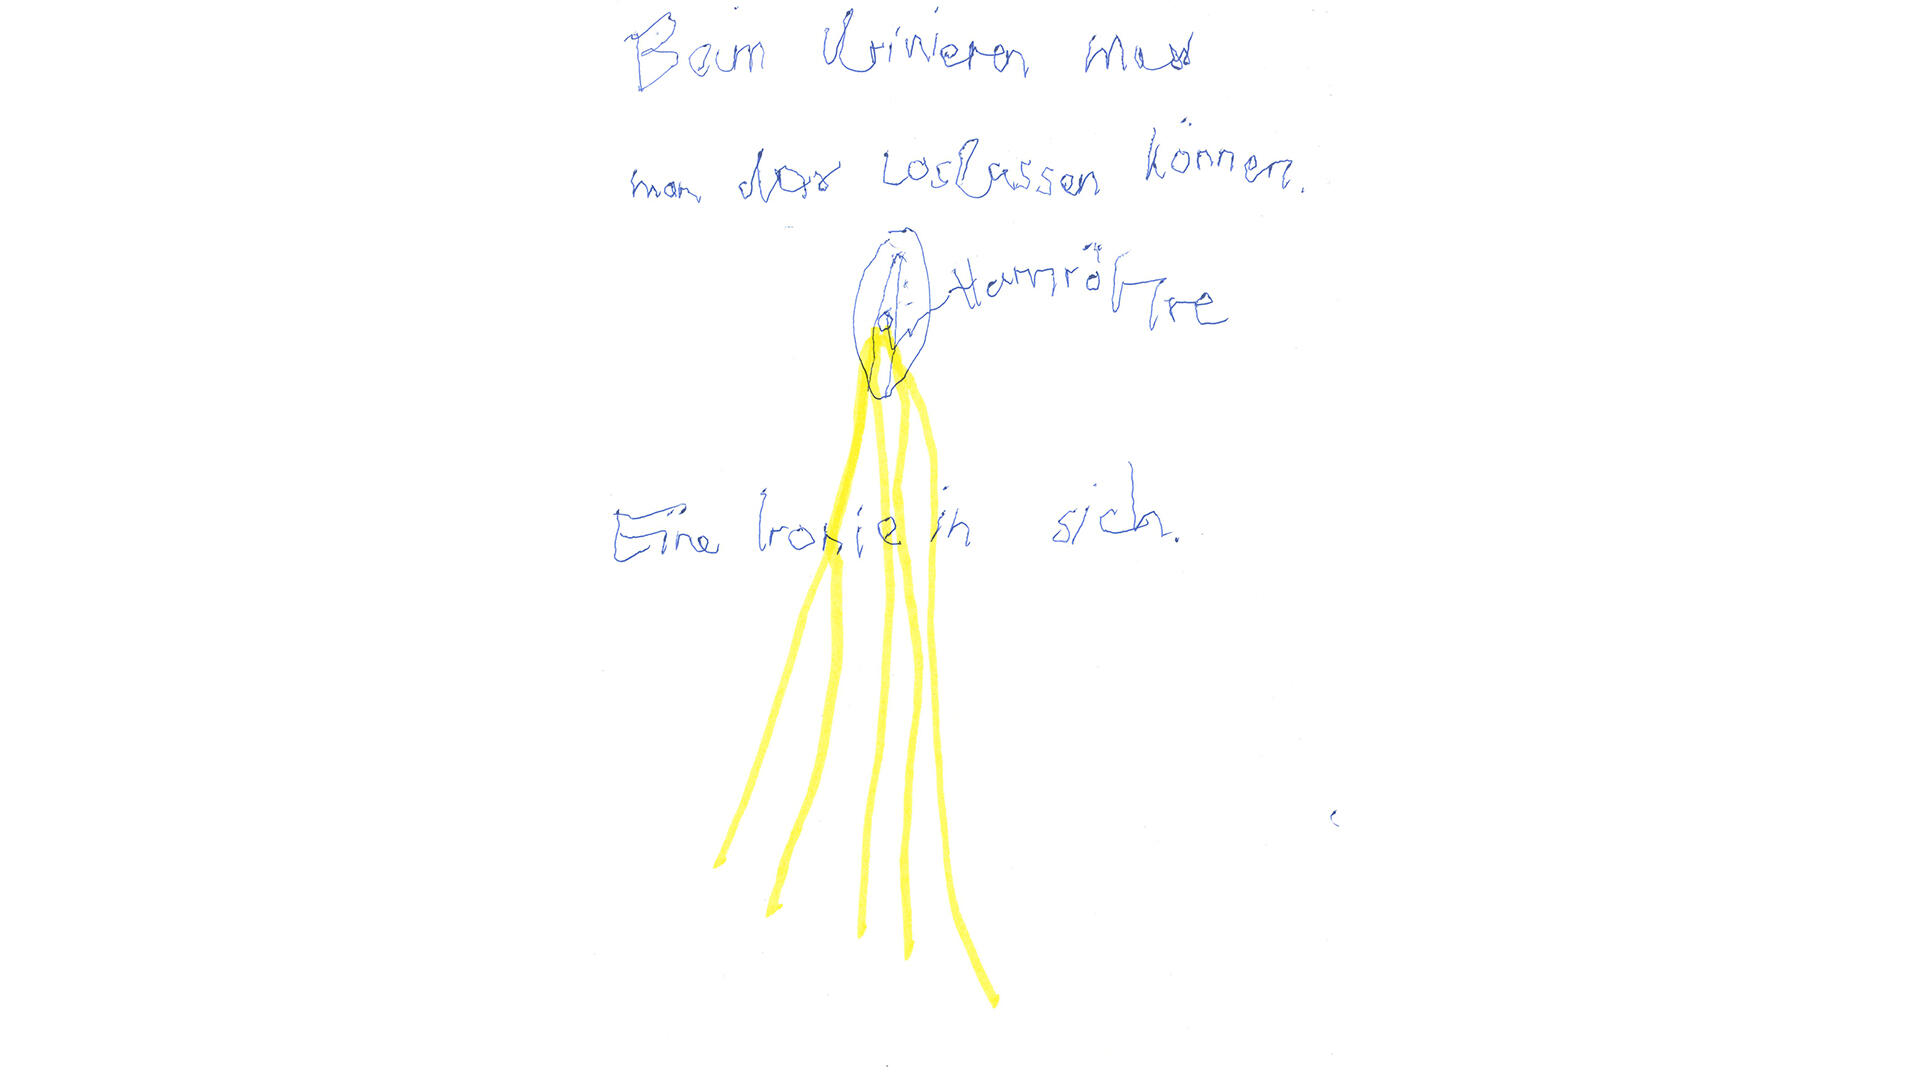 Beim Urinieren muss
man das Loslassen können.
Harnröhre
Eine Ironie in sich.